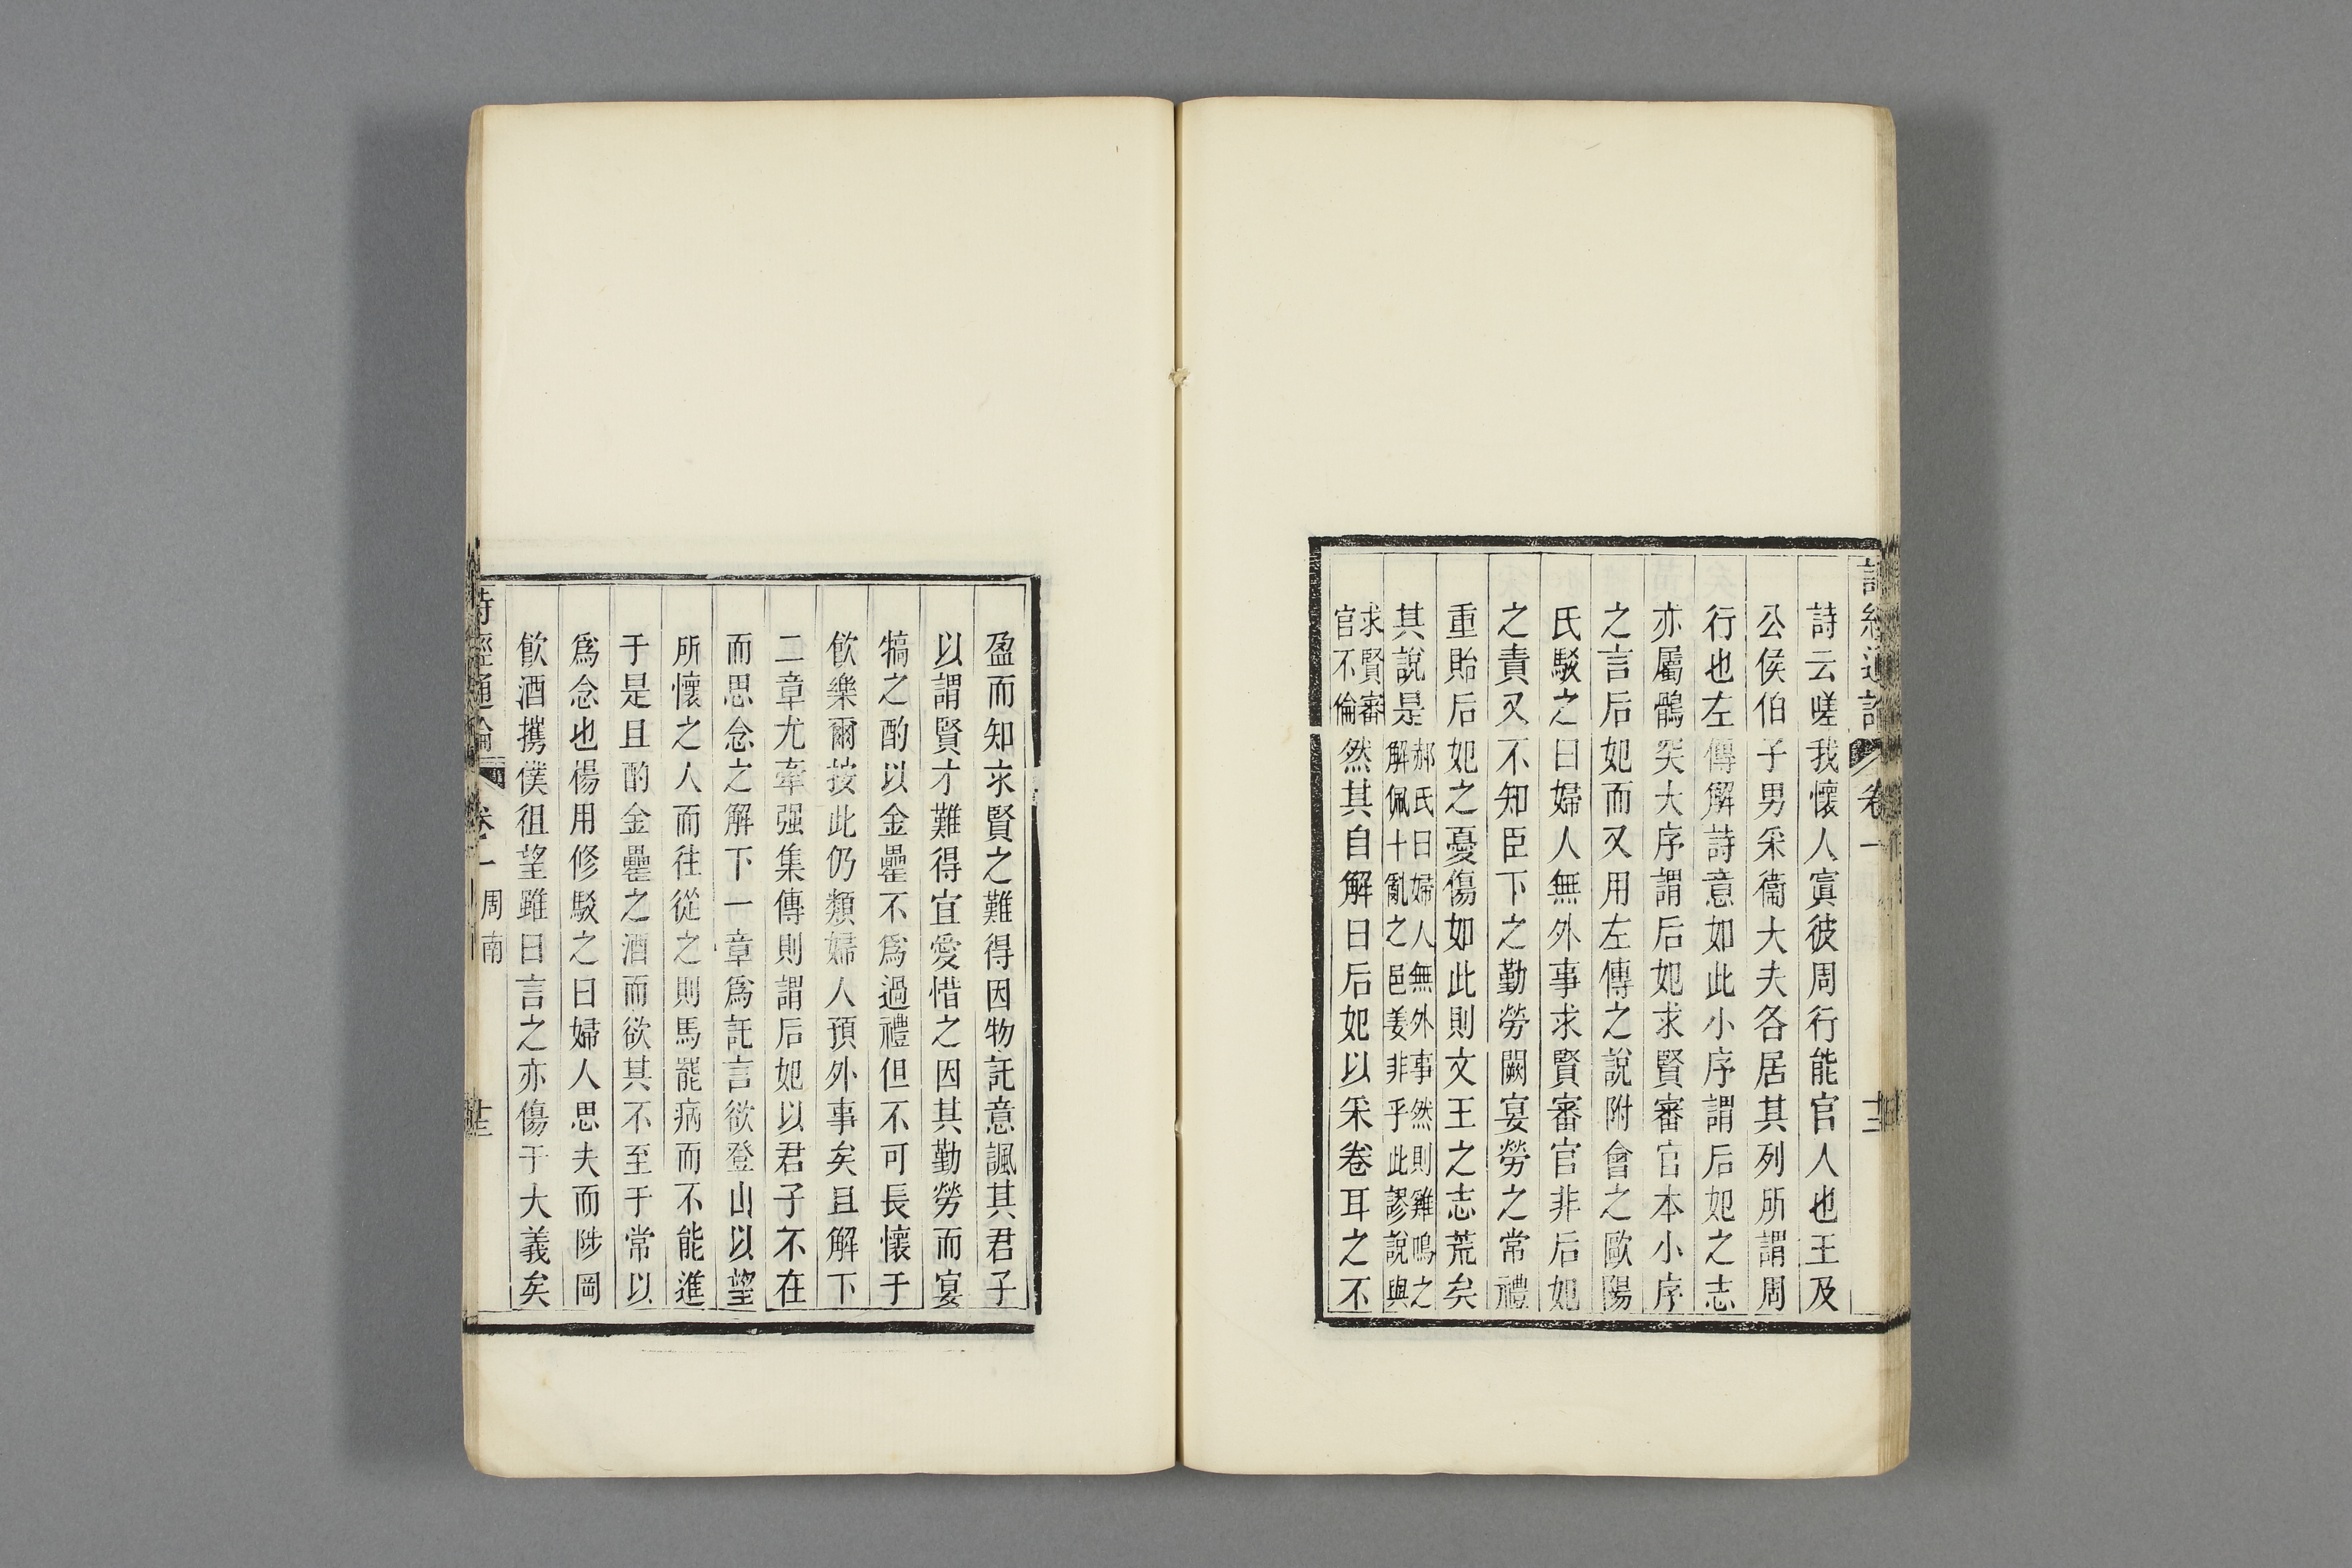 詩經通論
卷一
十二
詩云嗟我懷人寘彼周行能官人也王及
公侯伯子男采衞大夫各居其列所謂周
行也左傳解詩意如此小序謂后妃之志
亦屬鶻突大序謂后妃求賢審官本小序
之言后妃而又用左傳之說附會之歐陽
氏駁之曰婦人無外事求賢審官非后妃
之責又不知臣下之勤勞闕宴勞之常禮
重貽后妃之憂傷如此則文王之志荒矣
其說是
郝氏曰婦人無外事然則雞鳴之
解佩十亂之邑姜非乎此謬說與
求賢審
官不倫
然其自解曰后妃以采卷耳之不
盈而知求賢之難得因物託意諷其君子
以謂賢才難得宜愛惜之因其勤勞而宴
犒之酌以金罍不爲過禮但不可長懷于
飲樂爾按此仍類婦人預外事矣且解下
二章尤牽强集傳則謂后妃以君子不在
而思念之解下一章爲託言欲登山以望
所懷之人而往從之則馬罷病而不能進
于是且酌金罍之酒而欲其不至于常以
爲念也楊用修駁之曰婦人思夫而陟岡
飲酒攜僕徂望雖曰言之亦傷于大義矣
詩經通論
卷一
周南
十三